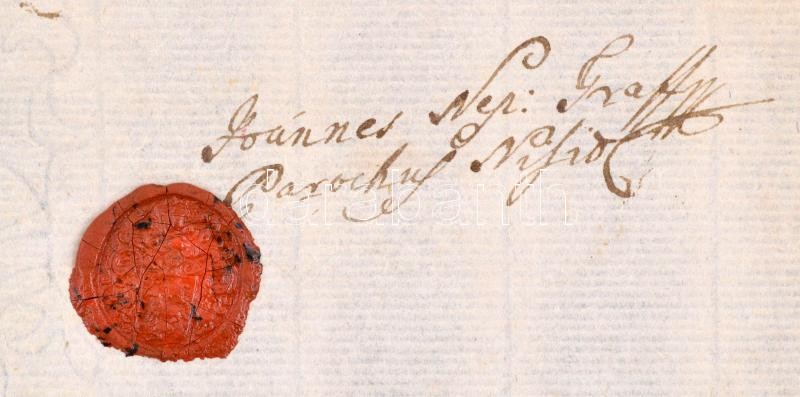 Joánnes Nep: Graff
Parochus Nisid
darabanth